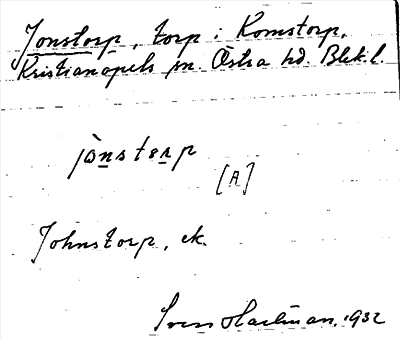 Jonstorp, torp i Komstorp,
Kristianopels sn. Östra hd. Blek. l.
jònstɵrp
[A]
Johnstorp, ek.
Sven Hallman, 1932